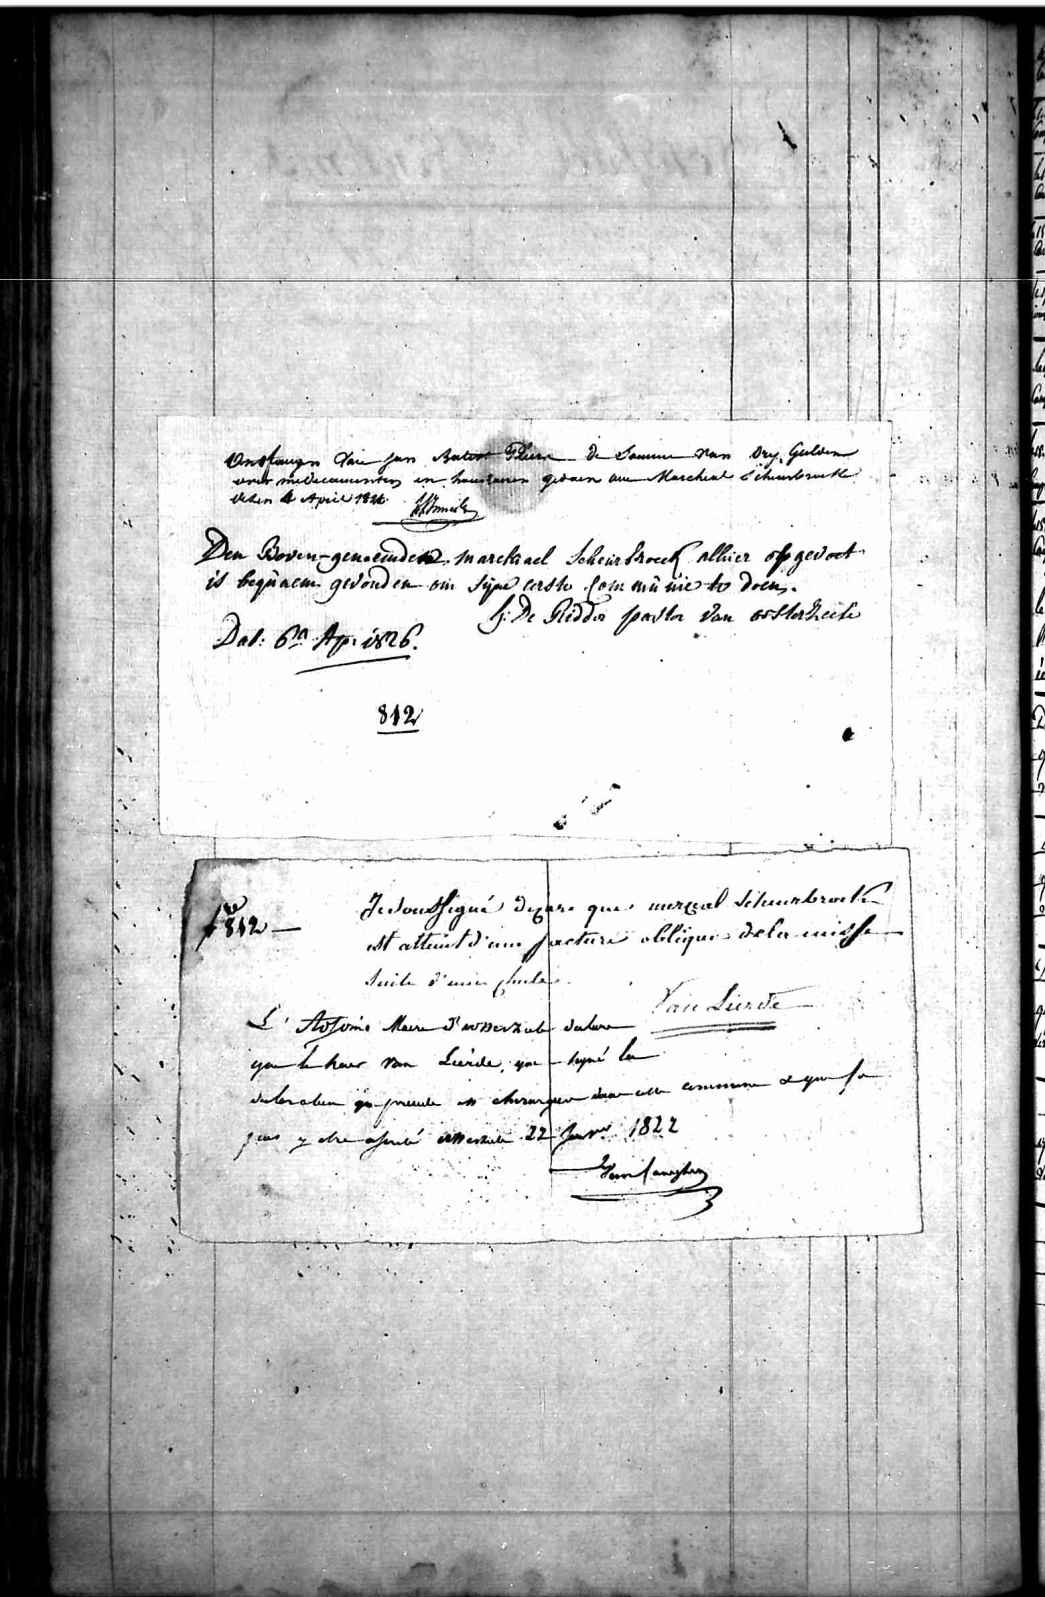 Ontfangen van jan Batist de Somme van dry Gulden
over medicamenten en gedaen aen Marchael Scheurbroeck
4 April 1826
Den Boven-genoemden marchael Scheirbroeck alhier opgevoet
is bequaem gevonden om sijne eerste Communie te doen.
De Ridder pastor van oosterzeele
Dat: 6en Ap: 1826.
812
812
Je soussigné declare que Scheurbroeck
est atteint d'une facture oblique de la cuisse
suite d'une chute
Van Lierde
L' Adjoint Maire d' declare
que le sieur Van Lierde, qui a signé la
declaration qui precede est chirurgien dans cette commune & que foi
peut y etre ajouté 22 Janvr 1822